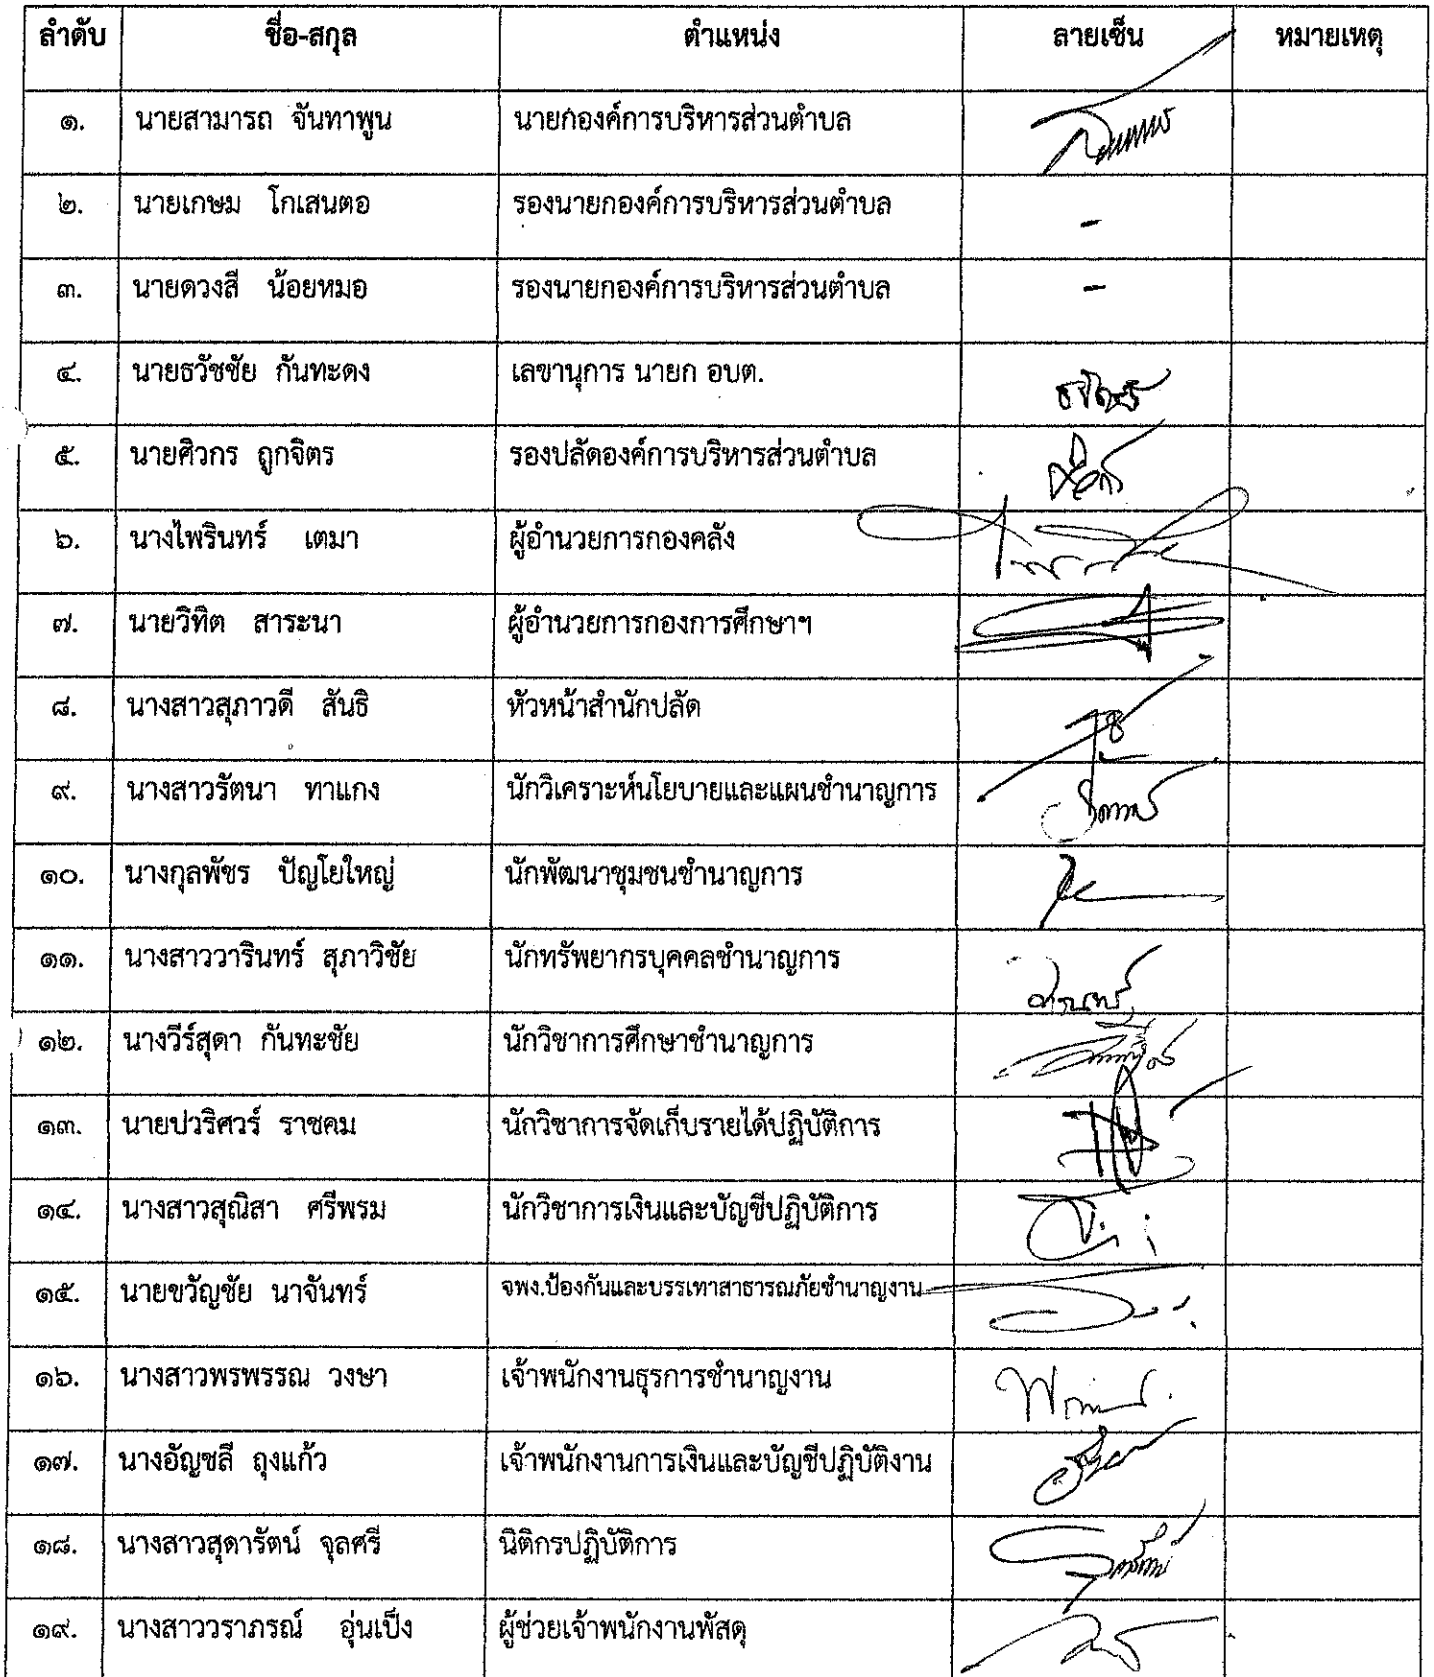 ลำดับ ชื่อ-สกุล ตำแหน่ง ลายเซ็น หมายเหตุ
๑. นายสามารถ จันทาพูน นายกองค์การบริหารส่วนตำบล
๒. นายเกษม โกเสนตอ รองนายกองค์การบริหารส่วนตำบล -
๓. นายดวงสี น้อยหมอ รองนายกองค์การบริหารส่วนตำบล -
๔. นายธวัชชัย กันทะดง เลขานุการ นายก อบต.
๕. นายศิวกร ถูกจิตร รองปลัดองค์การบริหารส่วนตำบล
๖. นางไพรินทร์ เตมา ผู้อำนวยการกองคลัง
๗. นายวิทิต สาระนา ผู้อำนวยการกองการศึกษาฯ
๘. นางสาวสุภาวดี สันธิ หัวหน้าสำนักปลัด
๙. นางสาวรัตนา ทาแกง นักวิเคราะห์นโยบายและแผนชำนาญการ
๑๐. นางกุลพัชร ปัญโยใหญ่ นักพัฒนาชุมชนชำนาญการ
๑๑. นางสาววารินทร์ สุภาวิชัย นักทรัพยากรบุคคลชำนาญการ
๑๒. นางวีร์สุดา กันทะชัย นักวิชาการศึกษาชำนาญการ
๑๓. นายปวริศวร์ ราชคม นักวิชาการจัดเก็บรายได้ปฏิบัติการ
๑๔. นางสาวสุณิสา ศรีพรม นักวิชาการเงินและบัญชีปฏิบัติการ
๑๕. นายขวัญชัย นาจันทร์ จพง.ป้องกันและบรรเทาสาธารณภัยชำนาญงาน
๑๖. นางสาวพรพรรณ วงษา เจ้าพนักงานธุรการชำนาญงาน
๑๗. นางอัญชลี ถุงแก้ว เจ้าพนักงานการเงินและบัญชีปฏิบัติงาน
๑๘. นางสาวสุดารัตน์ จุลศรี นิติกรปฏิบัติการ
๑๙. นางสาววราภรณ์ อุ่นเป็ง ผู้ช่วยเจ้าพนักงานพัสดุ